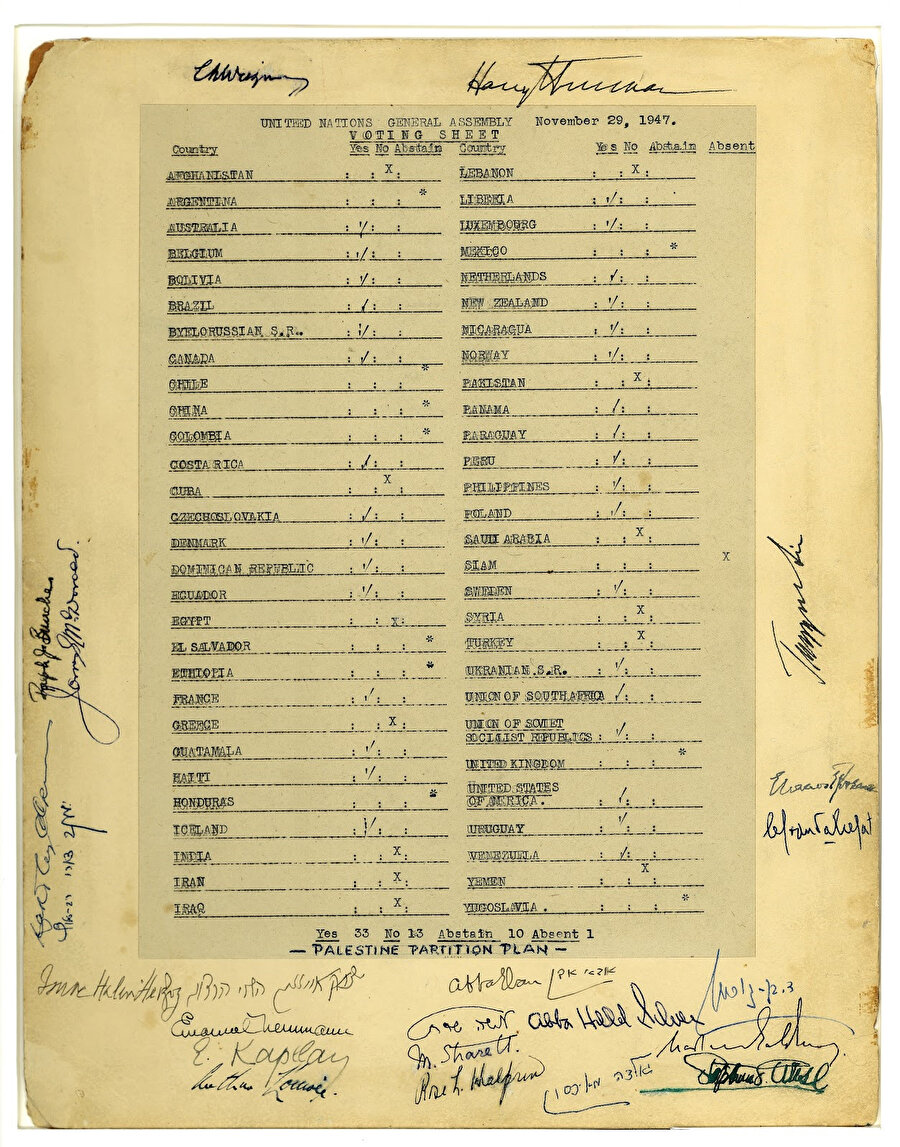 Ch Weizmann
Harry S Truman
UNITED NATIONS GENERAL ASSEMBLY November 29, 1947.
VOTING SHEET
Country Yes No Abstain
AFGHANISTAN : : X :
ARGENTINA : : : *
AUSTRALIA : ✓ : :
BELGIUM : ✓ : :
BOLIVIA : ✓ : :
BRAZIL : ✓ : :
BYELORUSSIAN S.R. : ✓ : :
CANADA : ✓ : :
CHILE : : : *
CHINA : : : *
COLOMBIA : : : *
COSTA RICA : ✓ : :
CUBA : : X :
CZECHOSLOVAKIA : ✓ : :
DENMARK : ✓ : :
DOMINICAN REPUBLIC : ✓ : :
ECUADOR : ✓ : :
EGYPT : : X :
EL SALVADOR : : : *
ETHIOPIA : : : *
FRANCE : ✓ : :
GREECE : : X :
GUATAMALA : ✓ : :
HAITI : ✓ : :
HONDURAS : : : *
ICELAND : ✓ : :
INDIA : : X :
IRAN : : X :
IRAQ : : X :
Country Yes No Abstain Absent
LEBANON : : X :
LIBERIA : ✓ : :
LUXEMBOURG : ✓ : :
MEXICO : : : *
NETHERLANDS : ✓ : :
NEW ZEALAND : ✓ : :
NICARAGUA : ✓ : :
NORWAY : ✓ : :
PAKISTAN : : X :
PANAMA : ✓ : :
PARAGUAY : ✓ : :
PERU : ✓ : :
PHILIPPINES : ✓ : :
POLAND : ✓ : :
SAUDI ARABIA : : X :
SIAM : : : X
SWEDEN : ✓ : :
SYRIA : : X :
TURKEY : : X :
UKRANIAN S.R. : ✓ : :
UNION OF SOUTH AFRICA ✓ : :
UNION OF SOVIET
SOCIALIST REPUBLICS : ✓ : :
UNITED KINGDOM : : : *
UNITED STATES
OF AMERICA. : ✓ : :
URUGUAY : ✓ : :
VENEZUELA : ✓ : :
YEMEN : : X :
YUGOSLAVIA . : : : *
Yes 33 No 13 Abstain 10 Absent 1
— PALESTINE PARTITION PLAN —
Ralph J. Bunche
James G. McDonald
Trygve Lie
Isaac Halevi Herzog יצחק אייזיק הלוי הרצוג
Emanuel Neumann
E. Kaplan
Arthur Lourie
Abba Eban אבא אבן
משה שרת Abba Hillel Silver
M. Sharett
Rose L. Halprin
ד. בן-גוריון
Nahum Goldmann
Stephen S. Wise
גולדה מאירסון